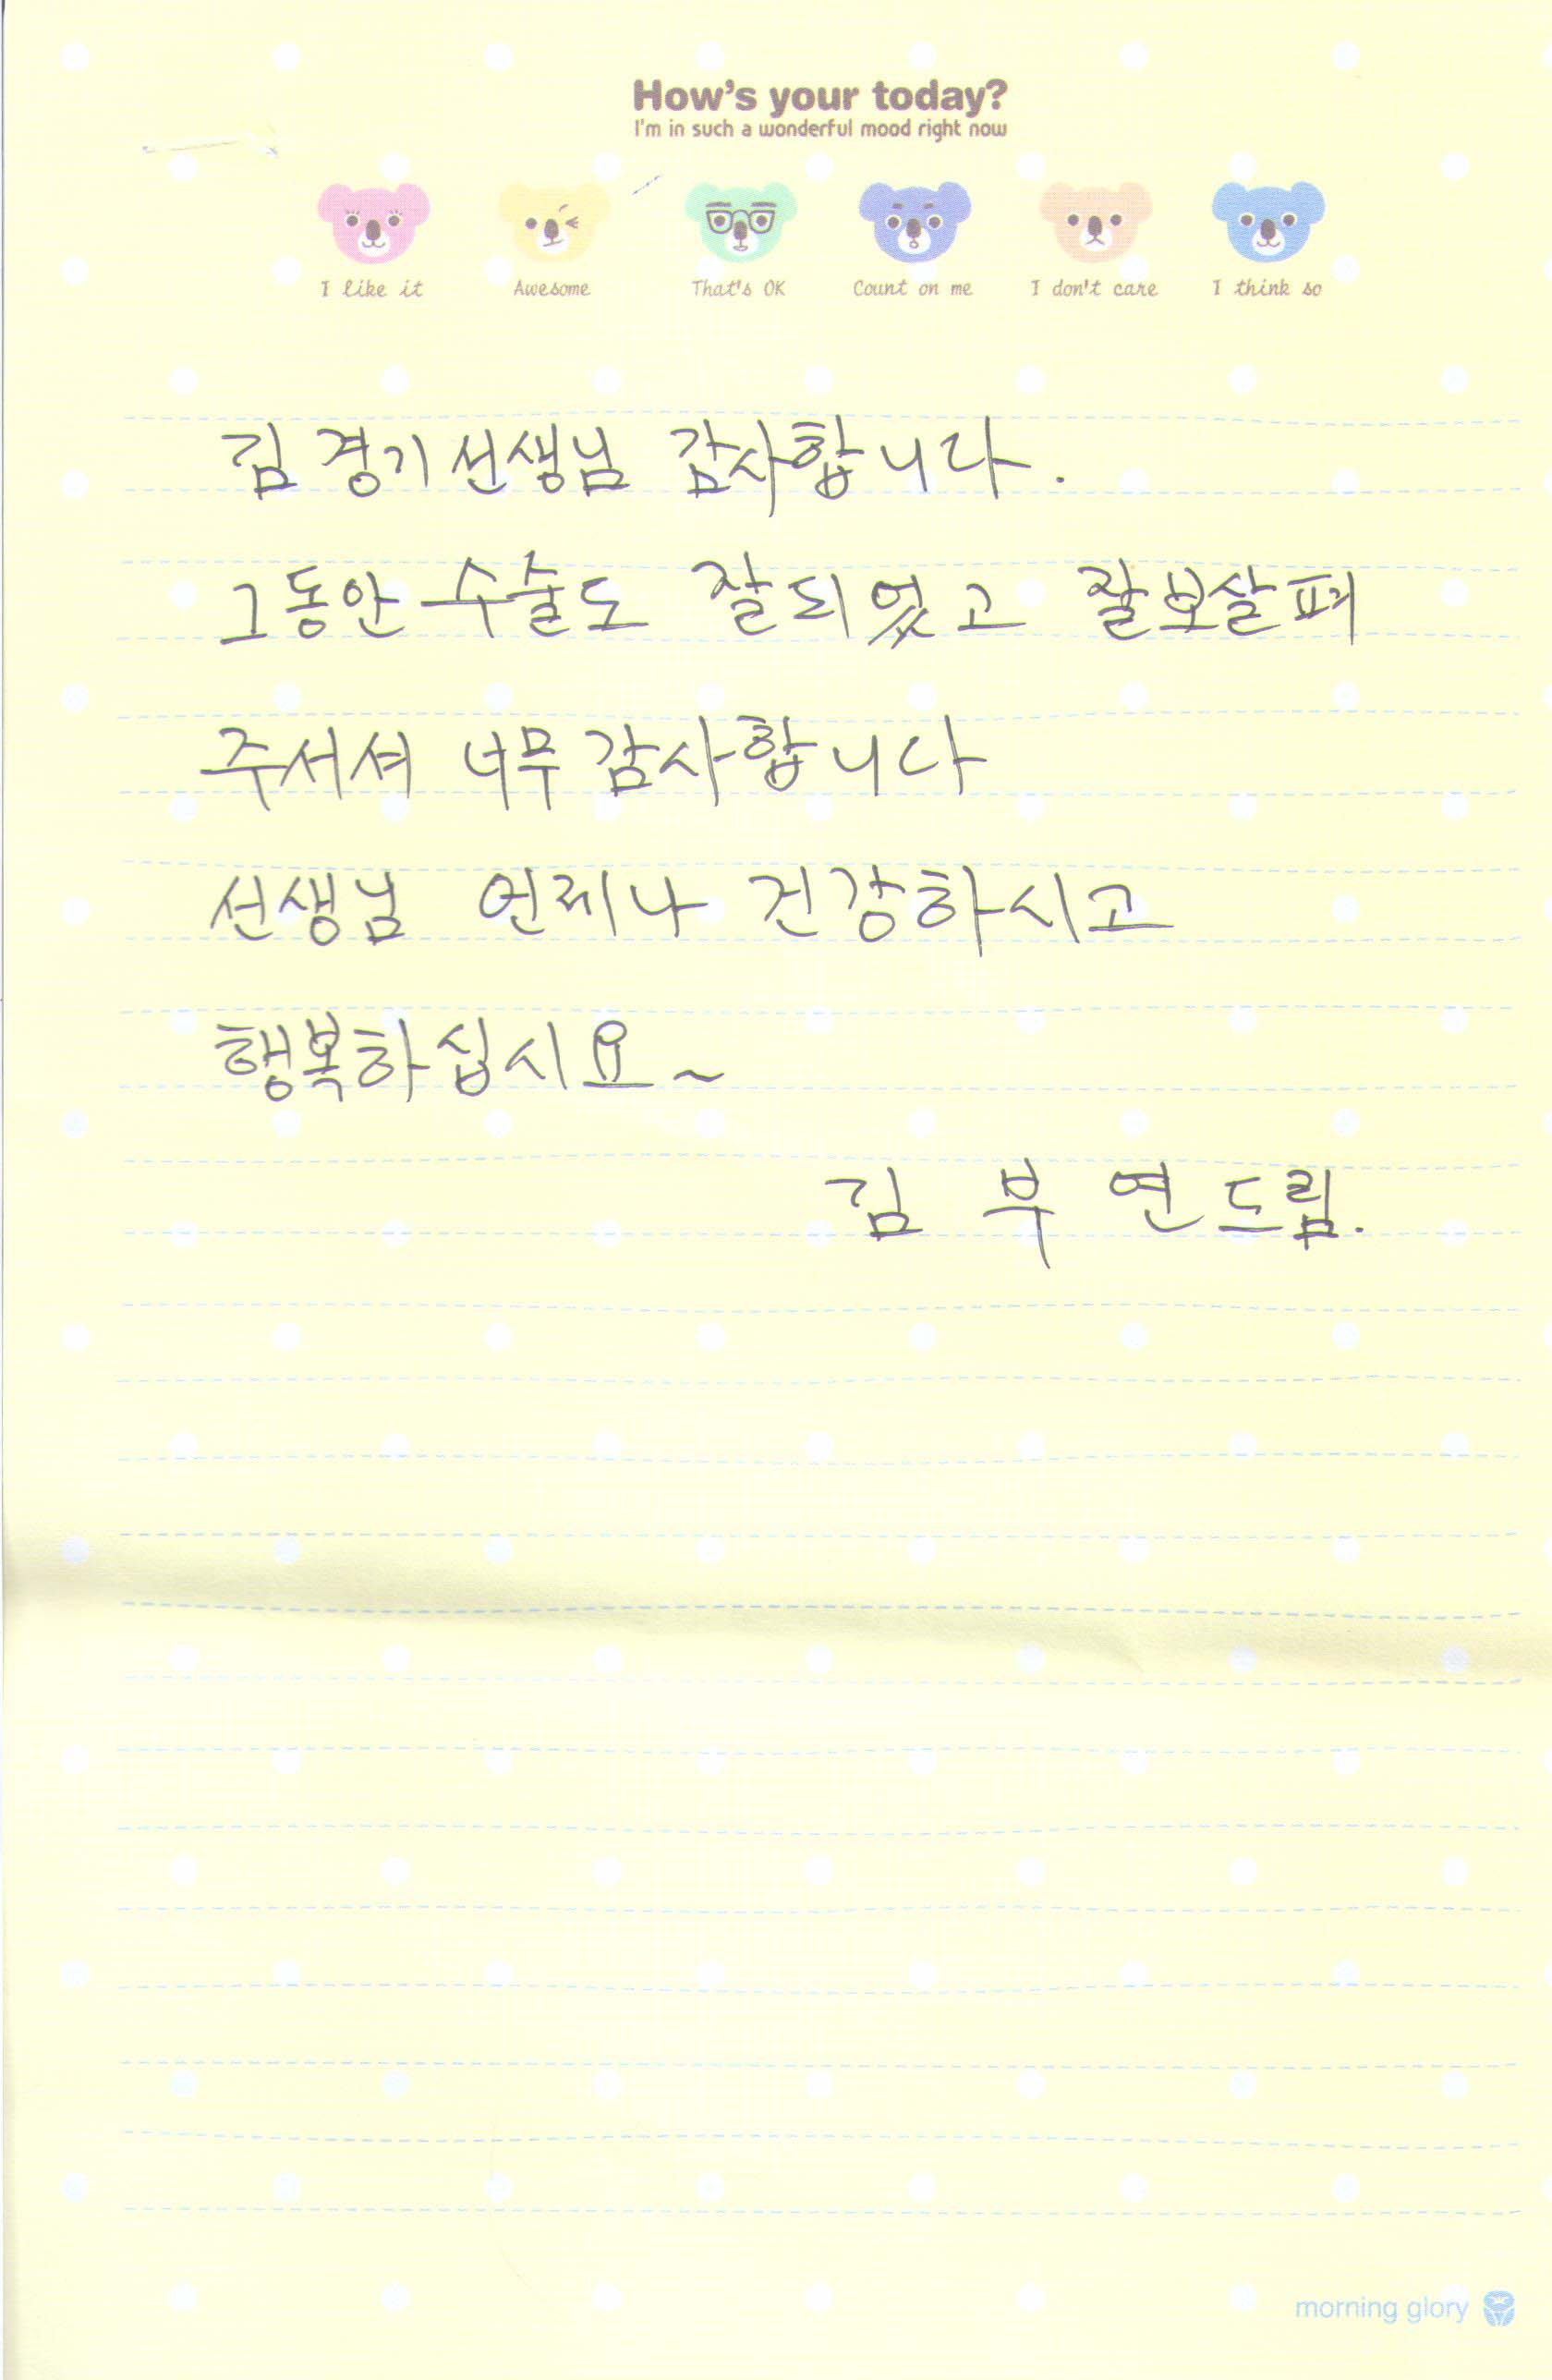 How's your today?
I'm in such a wonderful mood right now
I like it Awesome That's OK Count on me I don't care I think so
김경기선생님 감사합니다.
그동안 수술도 잘되었고 잘보살펴
주서셔 너무 감사합니다
선생님 언제나 건강하시고
행복하십시요~
김 부 연 드림.
morning glory